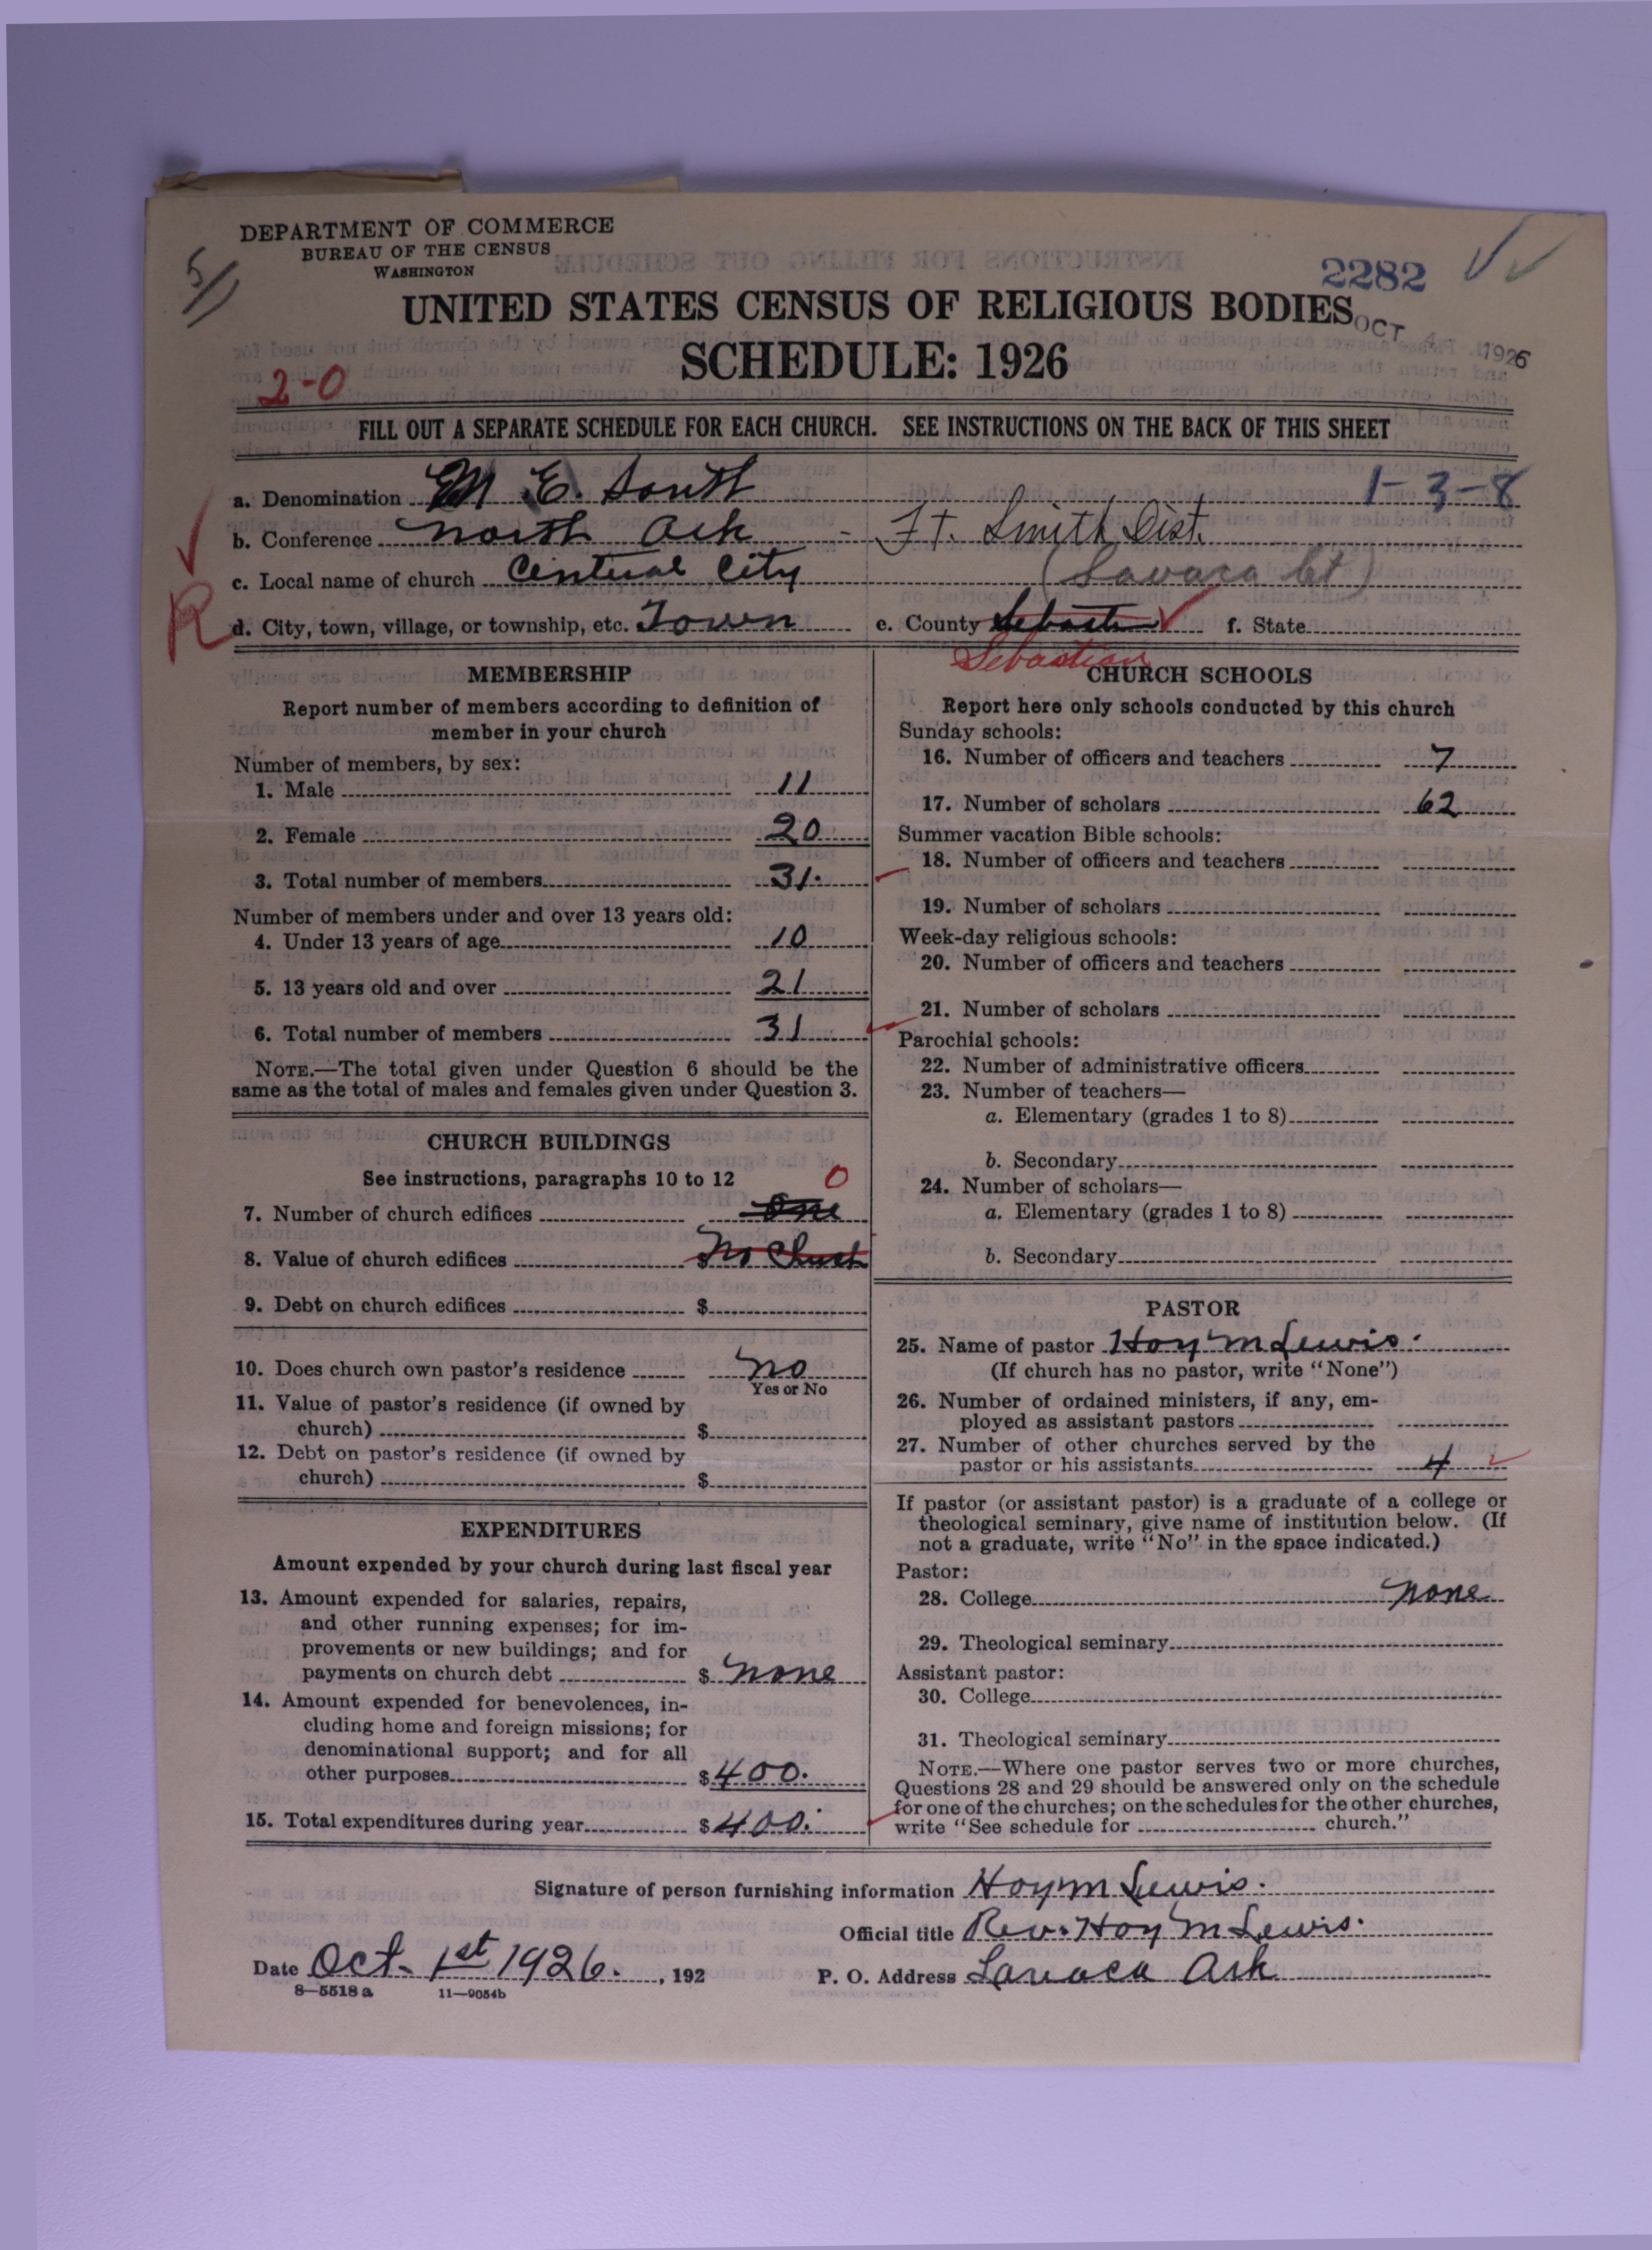 DEPARTMENT OF COMMERCE
BUREAU OF THE CENSUS
WASHINGTON
5/
2282
UNITED STATES CENSUS OF RELIGIOUS BODIES
OCT 4 1926
SCHEDULE: 1926
2-0
FILL OUT A SEPARATE SCHEDULE FOR EACH CHURCH. SEE INSTRUCTIONS ON THE BACK OF THIS SHEET
a. Denomination M. E. South 1-3-8
b. Conference North Ark - Ft. Smith Dist.
c. Local name of church Central City (Lavaca Ct)
R
d. City, town, village, or township, etc. Town e. County Sebastian f. State
Sebastian
MEMBERSHIP
Report number of members according to definition of
member in your church
Number of members, by sex:
1. Male 11
2. Female 20
3. Total number of members 31.
Number of members under and over 13 years old:
4. Under 13 years of age 10
5. 13 years old and over 21
6. Total number of members 31
NOTE.—The total given under Question 6 should be the
same as the total of males and females given under Question 3.
CHURCH BUILDINGS
See instructions, paragraphs 10 to 12 0
7. Number of church edifices One
8. Value of church edifices $ No Church
9. Debt on church edifices $
10. Does church own pastor's residence no
Yes or No
11. Value of pastor's residence (if owned by
church) $
12. Debt on pastor's residence (if owned by
church) $
EXPENDITURES
Amount expended by your church during last fiscal year
13. Amount expended for salaries, repairs,
and other running expenses; for im-
provements or new buildings; and for
payments on church debt $ none
14. Amount expended for benevolences, in-
cluding home and foreign missions; for
denominational support; and for all
other purposes $ 400.
15. Total expenditures during year $ 400.
CHURCH SCHOOLS
Report here only schools conducted by this church
Sunday schools:
16. Number of officers and teachers 7
17. Number of scholars 62
Summer vacation Bible schools:
18. Number of officers and teachers
19. Number of scholars
Week-day religious schools:
20. Number of officers and teachers
21. Number of scholars
Parochial schools:
22. Number of administrative officers
23. Number of teachers—
a. Elementary (grades 1 to 8)
b. Secondary
24. Number of scholars—
a. Elementary (grades 1 to 8)
b. Secondary
PASTOR
25. Name of pastor Hoy M Lewis.
(If church has no pastor, write "None")
26. Number of ordained ministers, if any, em-
ployed as assistant pastors
27. Number of other churches served by the
pastor or his assistants 4
If pastor (or assistant pastor) is a graduate of a college or
theological seminary, give name of institution below. (If
not a graduate, write "No" in the space indicated.)
Pastor:
28. College none
29. Theological seminary
Assistant pastor:
30. College
31. Theological seminary
NOTE.—Where one pastor serves two or more churches,
Questions 28 and 29 should be answered only on the schedule
for one of the churches; on the schedules for the other churches,
write "See schedule for church."
Signature of person furnishing information Hoy M Lewis.
Official title Rev. Hoy M Lewis.
Date Oct. 1st 1926., 192 P. O. Address Lavaca Ark
8—5518 a 11—9054b